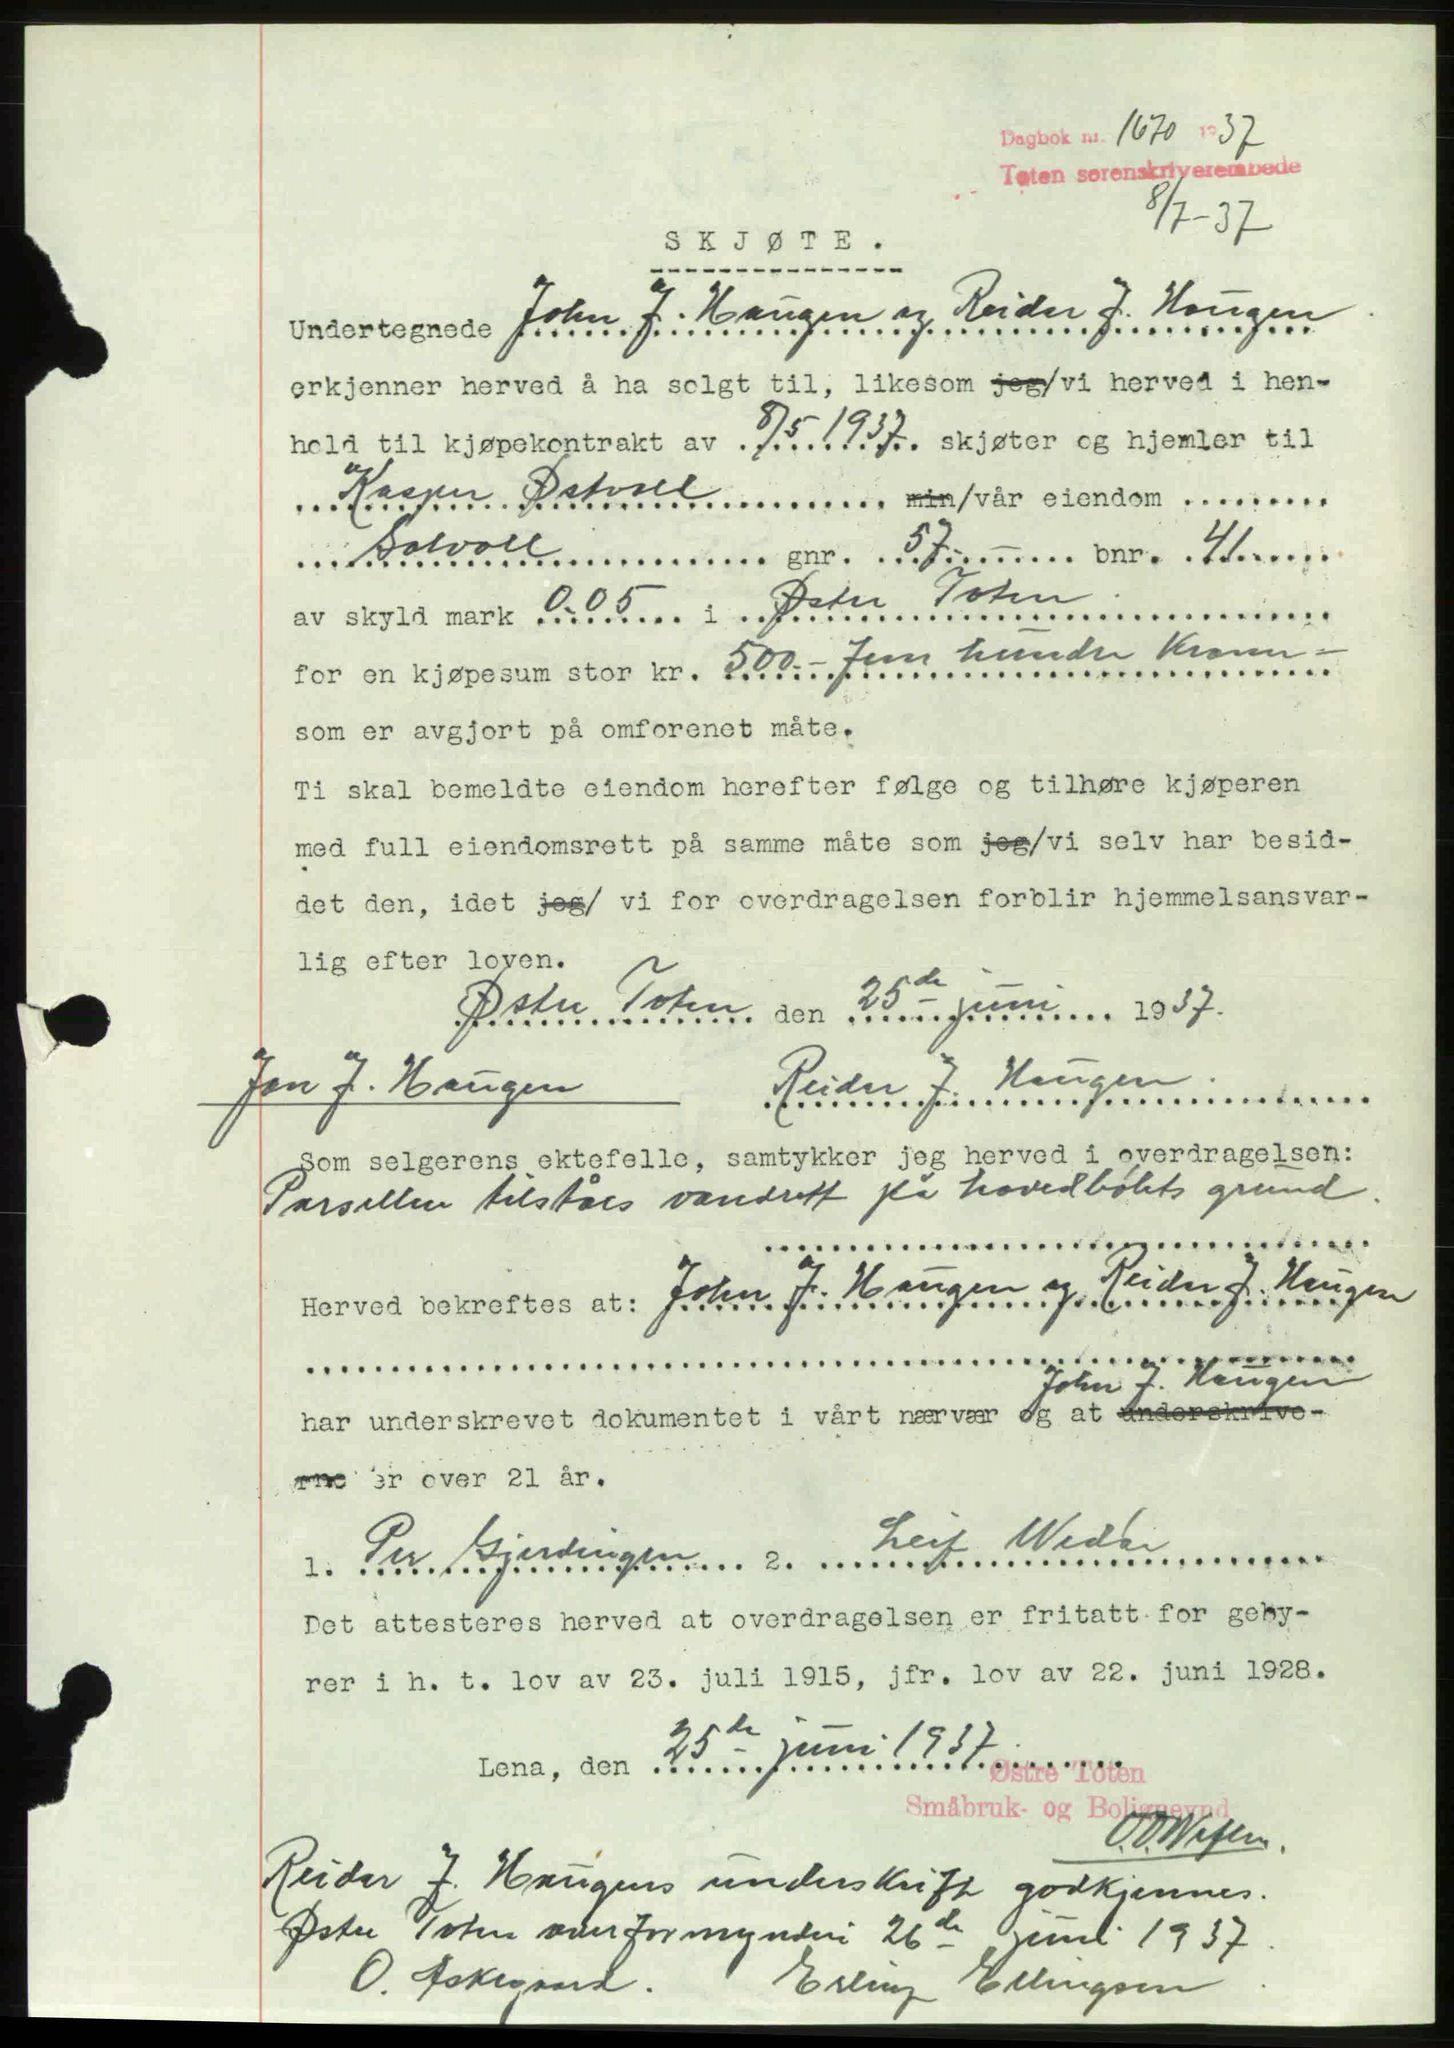 Dagbok nr. 1670 1937
Toten sorenskriverembede
8/7-37
SKJØTE.
Undertegnede John J. Haugen og Reidar J. Haugen
erkjenner herved å ha solgt til, likesom jeg/vi herved i hen-
hold til kjøpekontrakt av 8/5 1937. skjøter og hjemler til
Kasper Østvoll min/vår eiendom
Solvoll gnr. 57 bnr. 41
av skyld mark 0.05 i Østre Toten
for en kjøpesum stor kr. 500.- Fem hundre Kroner -
som er avgjort på omforenet måte.
Ti skal bemeldte eiendom herefter følge og tilhøre kjøperen
med full eiendomsrett på samme måte som jeg/vi selv har besid-
det den, idet jeg/ vi for overdragelsen forblir hjemmelsansvar-
lig efter loven.
Østre Toten den 25de juni 1937.
Jon J. Haugen Reidar J. Haugen
Som selgerens ektefelle, samtykker jeg herved i overdragelsen:
Parsellen tilståes vandrett på hovedbølets grund.
Herved bekreftes at: John J. Haugen og Reidar J. Haugen
John J. Haugen
har underskrevet dokumentet i vårt nærvær og at underskrive-
rne er over 21 år.
1. Per Gjerdingen 2. Leif
Det attesteres herved at overdragelsen er fritatt for geby-
rer i h. t. lov av 23. juli 1915, jfr. lov av 22. juni 1928.
Lena, den 25de juni 1937.
Østre Toten
Småbruk- og Bolignevnd
Reidar J. Haugens underskrift godkjennes.
Østre Toten overformynderi 26de juni 1937.
O. Askegaard. Erling Ellingsen